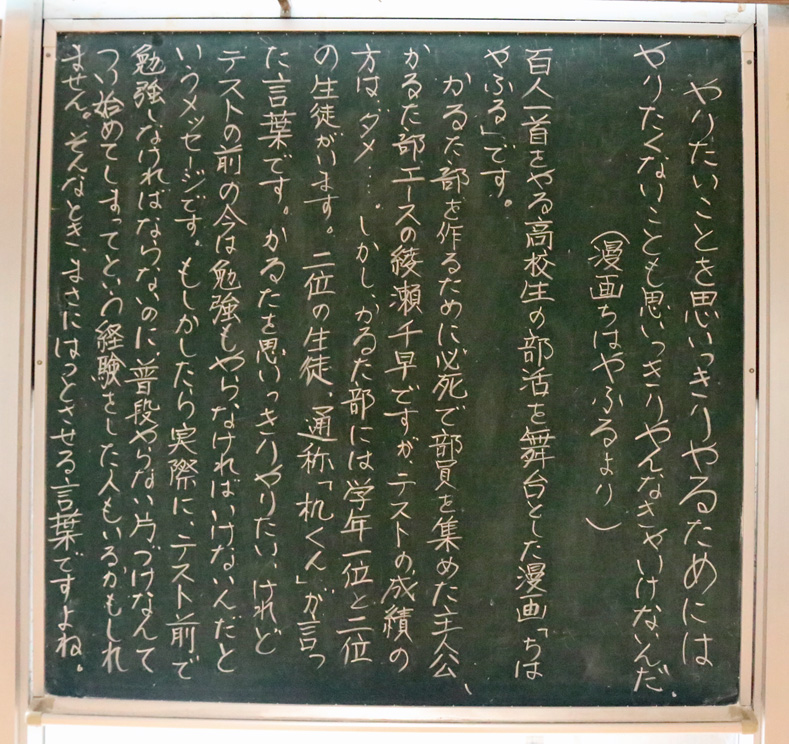 やりたいことを思いっきりやるためには
やりたくないことも思いっきりやんなきゃいけないんだ。
（漫画ちはやふるより）
百人一首をやる高校生の部活を舞台とした漫画「ちは
やふる」です。
かるた部を作るために必死で部員を集めた主人公、
かるた部エースの綾瀬千早ですが、テストの成績の
方は、ダメ…。しかし、かるた部には学年一位と二位
の生徒がいます。二位の生徒、通称「机くん」が言っ
た言葉です。かるたを思いっきりやりたい、けれど
テストの前の今は勉強もやらなければいけないんだと
いうメッセージです。もしかしたら実際に、テスト前で
勉強しなければならないのに、普段やらない片づけなんて
つい始めてしまってという経験をした人もいるかもしれ
ません。そんなとき、まさにはっとさせる言葉ですよね。